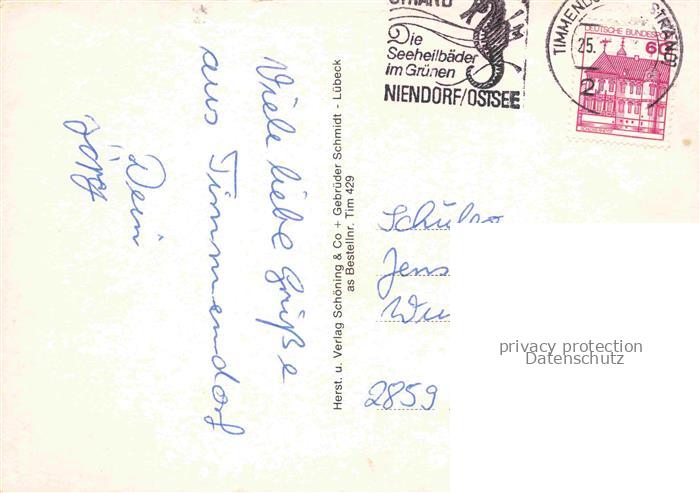 Viele liebe Grüße
aus Timmendorf
Dein
Jörg
Herst. u. Verlag Schöning & Co + Gebrüder Schmidt - Lübeck
as Bestellnr. Tim 429
STRAND
Die
Seeheilbäder
im Grünen
NIENDORF/OSTSEE
25.
2
DEUTSCHE BUNDESPOST
60
Jens
2859
privacy protection
Datenschutz